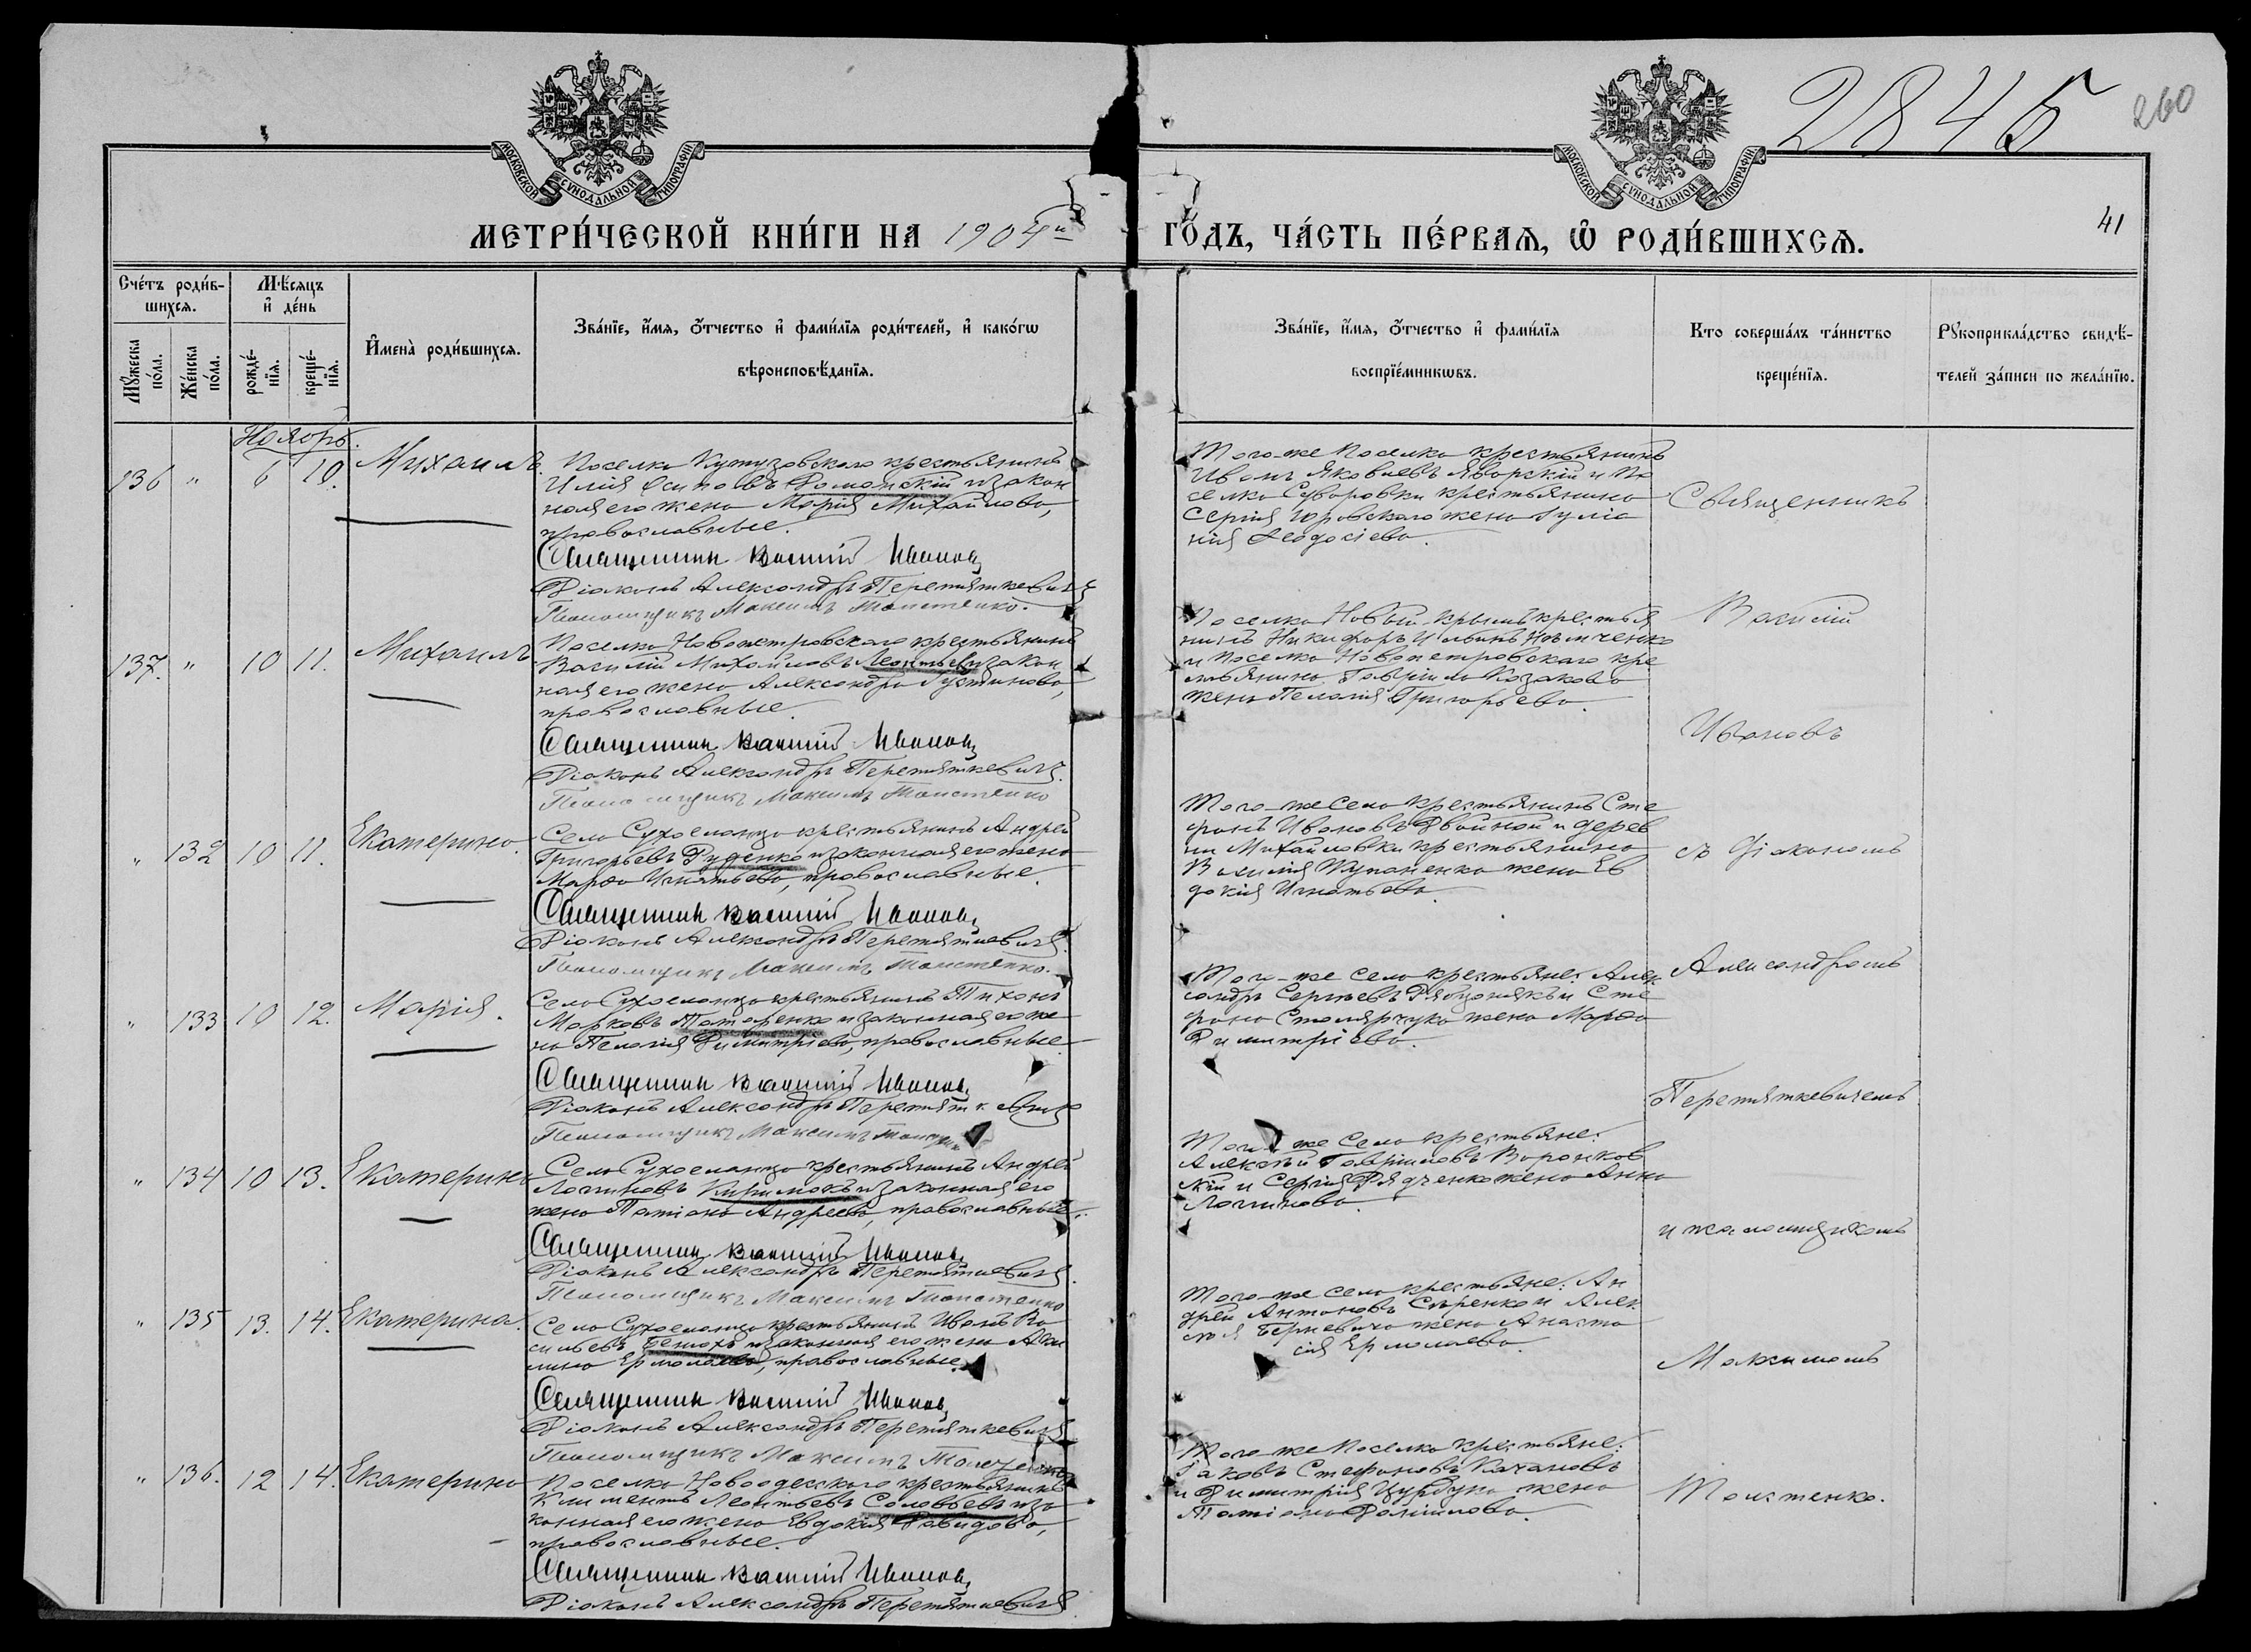 2845
260
МОСКОВСКОЙ СѴНОДАЛЬНОЙ ТИПОГРАФІИ
МОСКОВСКОЙ СѴНОДАЛЬНОЙ ТИПОГРАФІИ
МЕТРИ́ЧЕСКОЙ КНИ́ГИ НА 1904й ГО́ДЪ, ЧА́СТЬ ПЕ́РВАѦ, Ѡ҆ РОДИ́ВШИХСѦ.
41
Сче́тъ роди́в-
шихсѧ.
Мꙋ́жеска по́ла.
Же́нска по́ла.
Мѣ́сѧцъ
и҆ де́нь
рожде́-
нїѧ.
креще́-
нїѧ.
И҆мена̀ роди́вшихсѧ.
Зва́нїе, и҆́мѧ, ѻ҆́тчество и҆ фами́лїѧ роди́телей, и҆ како́гѡ
вѣроисповѣ́данїѧ.
Зва́нїе, и҆́мѧ, ѻ҆́тчество и҆ фами́лїѧ
воспрїе́мникѡвъ.
Кто соверша́лъ та́инство
креще́нїѧ.
Рꙋкоприкла́дство свидѣ́-
телей за́писи по жела́нїю.
Ноябрь.
136 " 6 10. Михаилъ.
Поселка Кутузовскаго крестьянинъ
Илія Осиповъ Романскій и закон
ная его жена Марія Михайлова,
православные.
Священникъ Василій Ивановъ
Діаконъ Александръ Перетяткевичъ
Псаломщикъ Максимъ Толстенко.
Того-же поселка крестьянинъ
Иванъ Яковлевъ Яворскій и По
селка Суворовки крестьянина
Сергія Юровскаго жена Іуліа
нія Ѳеодосіева.
137. " 10 11. Михаилъ
Поселка Новопетровскаго крестьянинъ
Василій Михайловъ Леонтьев и закон
ная его жена Александра Густинова,
православные.
Священникъ Василій Ивановъ
Діаконъ Александръ Перетяткевичъ.
Псаломщикъ Максимъ Толстенко
Поселка Новый-Крымъ крестья
нинъ Никифоръ Ильинъ
и поселка Новопетровскаго кре
стьянина Гавріила Козакова
жена Пелагія Григорьева.
" 132 10 11. Екатерина.
Села Сухоеланца крестьянинъ Андрей
Григорьевъ Руденко и законная его жена
Марѳа Игнатьева, православные.
Священникъ Василій Ивановъ
Діаконъ Александръ Перетяткевичъ.
Псаломщикъ Максимъ Толстенко.
Того-же села крестьянинъ Сте
фанъ Ивановъ Двойной и дерев
ни Михайловки крестьянина
Василія Купаненка жена Ев
докія Игнатьева.
" 133 10 12. Марія.
Села Сухоеланца крестьянинъ Тихонъ
Марковъ Татаренко и законная его же
на Пелагія Димитріева, православные
Священникъ Василій Ивановъ
Діаконъ Александръ Перетяткевичъ
Псаломщикъ Максимъ
Того-же села крестьяне: Алек
сандръ Сергѣевъ Рябцонякъ и Сте
фана Столярчука жена Марѳа
Димитріева.
" 134 10 13. Екатерина
Села Сухоеланца крестьянинъ Андрей
Логиновъ Кирилюкъ и законная его
жена Татіана Андреева, православные.
Священникъ Василій Ивановъ
Діаконъ Александръ Перетяткевичъ.
Псаломщикъ Максимъ Толстенко
Того же села крестьяне:
Алексѣй Гавріиловъ Воронков
скій и Сергія Дядченка жена Анна
Логинова.
" 135 13. 14. Екатерина.
Села Сухоеланца крестьянинъ Иванъ Ва
сильевъ и законная его жена Аки
лина Ермолаева, православные.
Священникъ Василій Ивановъ
Діаконъ Александръ Перетяткевичъ
Псаломщикъ Максимъ Толстенко
Того-же села крестьяне: Ан
дрей Антоновъ Сѣренко и Алек
сѣя Берневича жена Анаста
сія Ермолаева.
" 136. 12 14. Екатерина
Поселка Новоодесскаго крестьянинъ
Климентъ Леонтьевъ Соловьевъ и за
конная его жена Евдокія Давидова,
православные.
Священникъ Василій Ивановъ
Діаконъ Александръ Перетяткевичъ
Того же поселка крестьяне:
Іаковъ Стефановъ Качановъ
и Димитрія Цурбуна жена
Татіана Даніилова.
Священникъ
Василій
Ивановъ
съ Діакономъ
Александромъ
Перетяткевичемъ
и псаломщикомъ
Максимомъ
Толстенко.